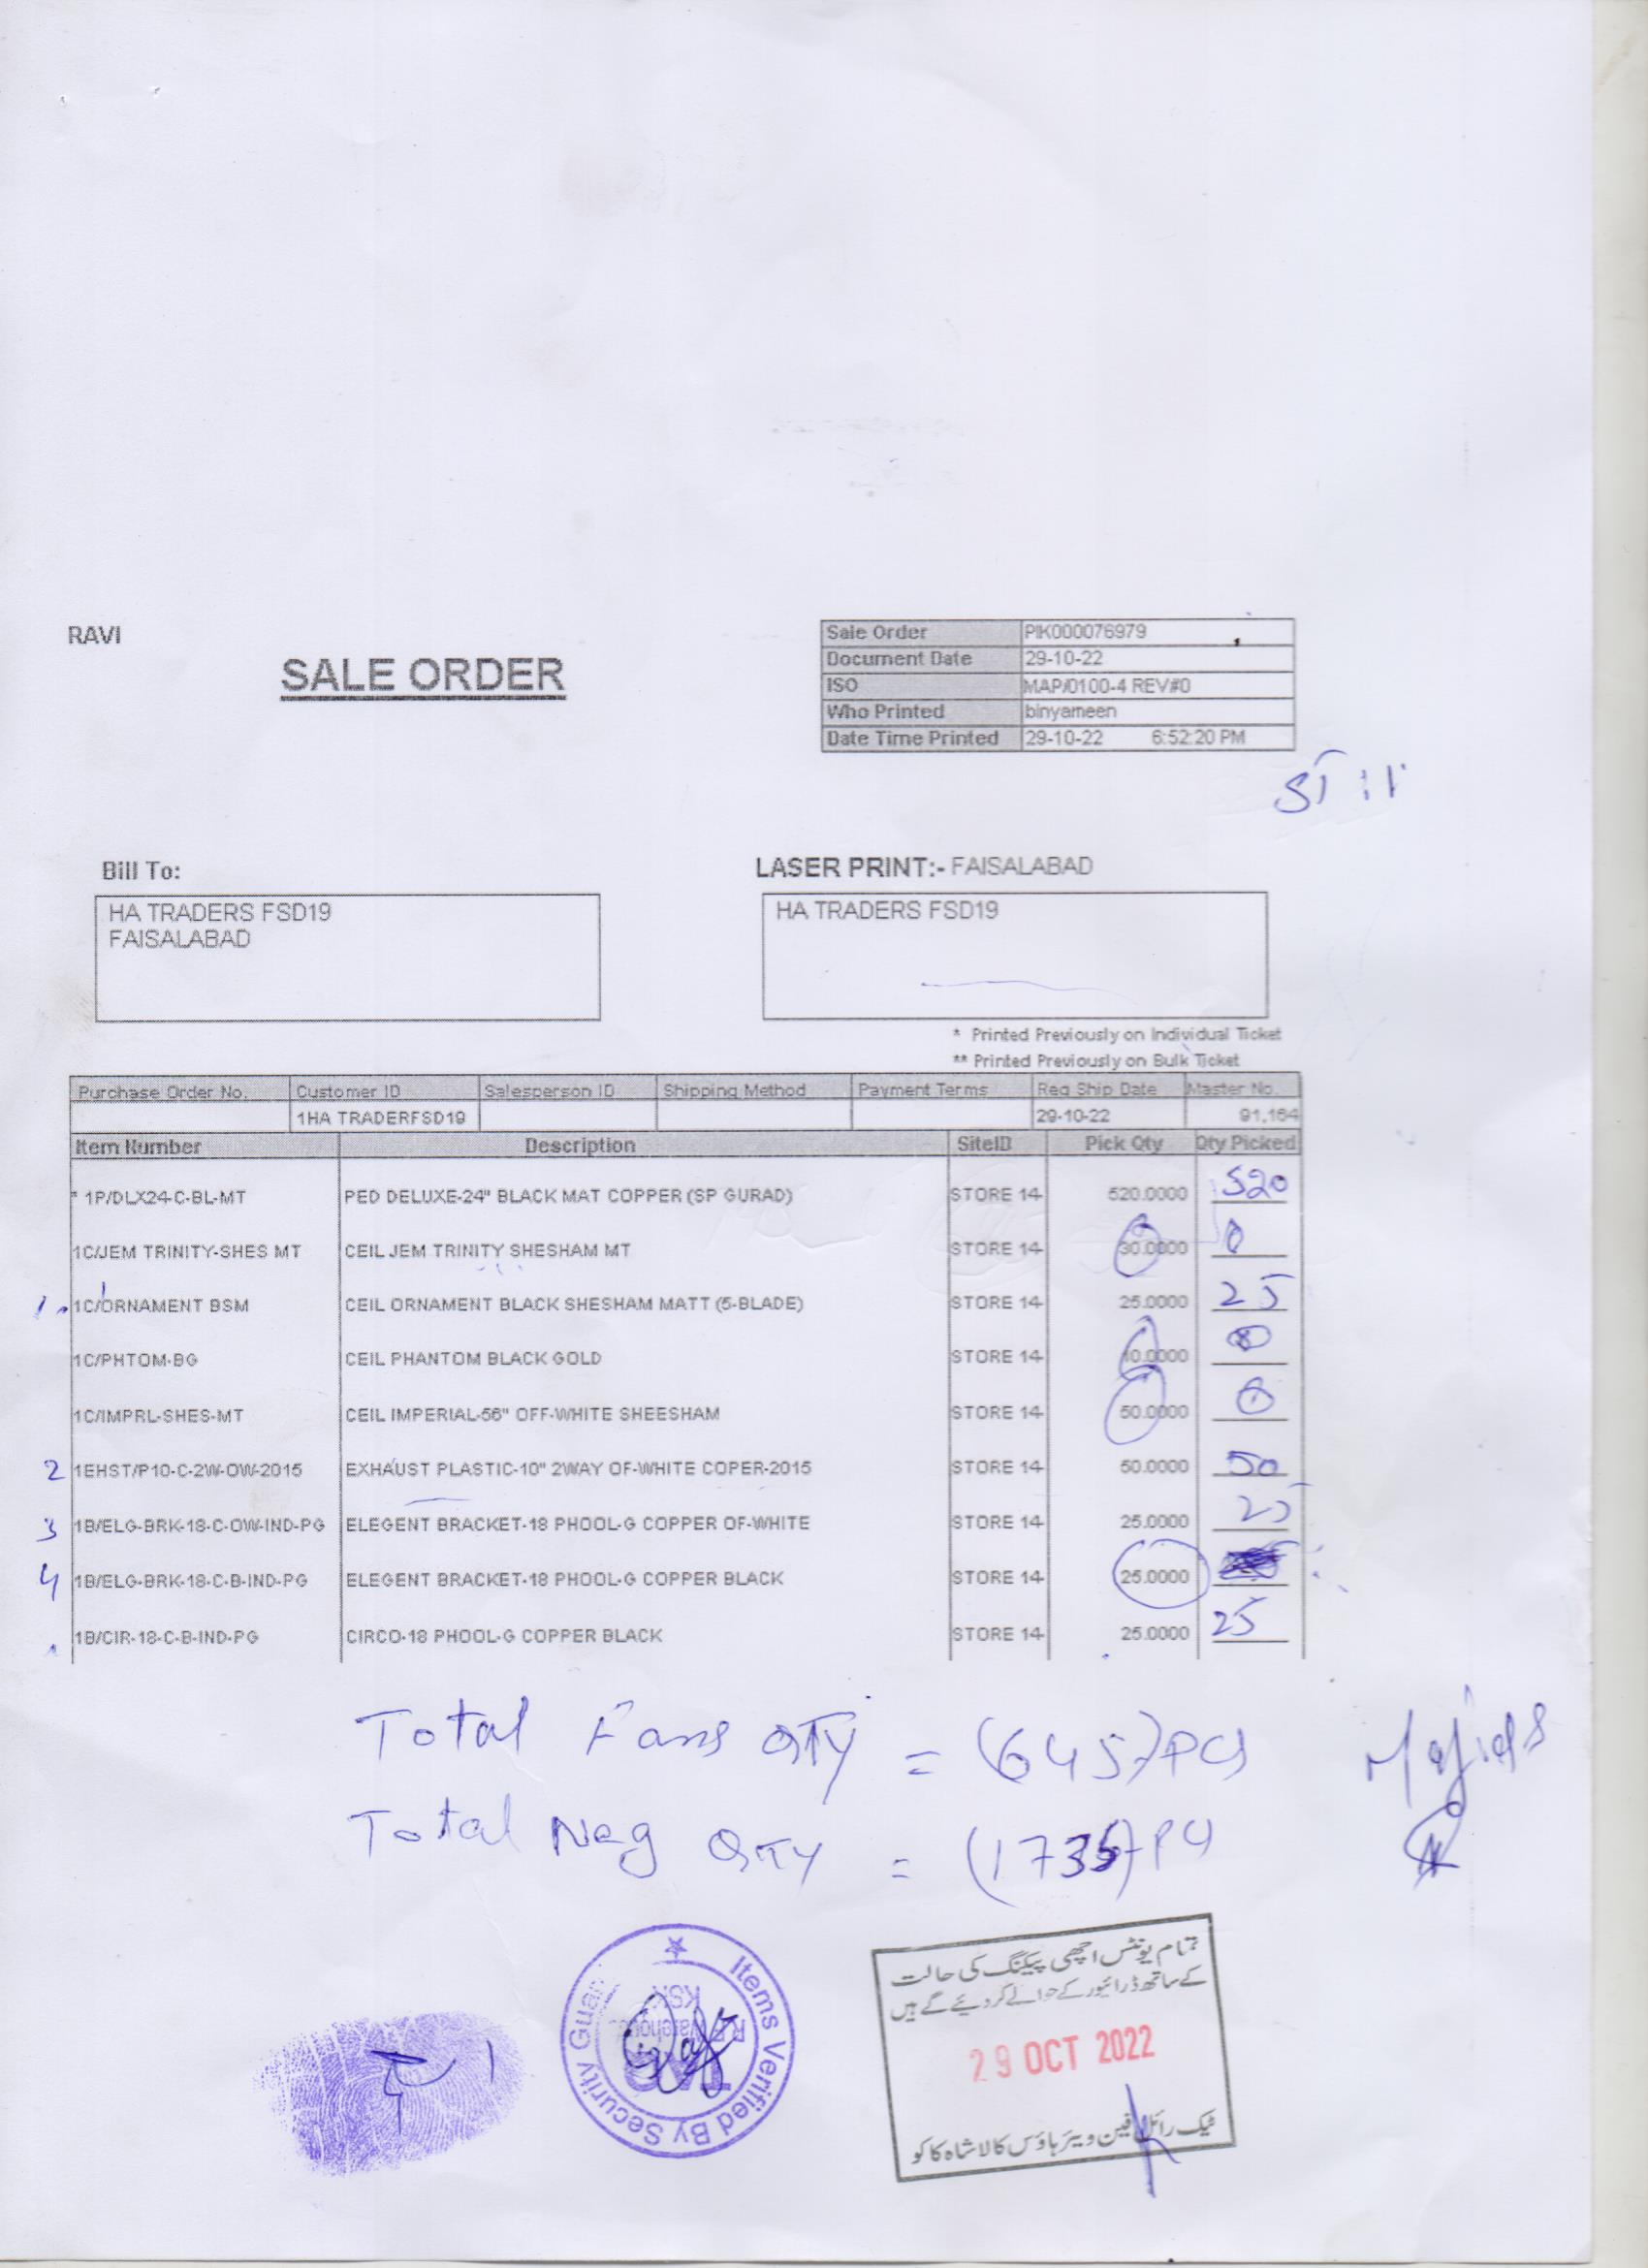 RAVI
SALE ORDER
Sale Order PIK000076979
Document Date 29-10-22
ISO MAP/0100-4 REV#0
Who Printed binyameen
Date Time Printed 29-10-22 6:52:20 PM
Bill To:
HA TRADERS FSD19
FAISALABAD
LASER PRINT:- FAISALABAD
HA TRADERS FSD19
* Printed Previously on Individual Ticket
** Printed Previously on Bulk Ticket
Purchase Order No. Customer ID Salesperson ID Shipping Method Payment Terms Req Ship Date Master No.
1HA TRADERFSD19 29-10-22 91,164
Item Number Description SiteID Pick Qty Qty Picked
* 1P/DLX24-C-BL-MT PED DELUXE-24" BLACK MAT COPPER (SP GURAD) STORE 14 520.0000 520
1C/JEM TRINITY-SHES MT CEIL JEM TRINITY SHESHAM MT STORE 14 30.0000 0
1. 1C/ORNAMENT BSM CEIL ORNAMENT BLACK SHESHAM MATT (5-BLADE) STORE 14 25.0000 25
1C/PHTOM-BG CEIL PHANTOM BLACK GOLD STORE 14 10.0000 0
1C/IMPRL-SHES-MT CEIL IMPERIAL-56" OFF-WHITE SHEESHAM STORE 14 50.0000 0
2 1EHST/P10-C-2W-OW-2015 EXHAUST PLASTIC-10" 2WAY OF-WHITE COPER-2015 STORE 14 50.0000 50
3 1B/ELG-BRK-18-C-OW-IND-PG ELEGENT BRACKET-18 PHOOL-G COPPER OF-WHITE STORE 14 25.0000 25
4 1B/ELG-BRK-18-C-B-IND-PG ELEGENT BRACKET-18 PHOOL-G COPPER BLACK STORE 14 25.0000
1B/CIR-18-C-B-IND-PG CIRCO-18 PHOOL-G COPPER BLACK STORE 14 25.0000 25
Total Fans QTY = (645) PCs
Total Nag QTY = (1735) PC
Items Verified By Security Guard
تمام یونٹس اچھی پیکنگ کی حالت
کے ساتھ ڈرائیور کے حوالے کردیئے گے ہیں
29 OCT 2022
ٹیک رائل فین ویئر ہاؤس کالا شاہ کاکو